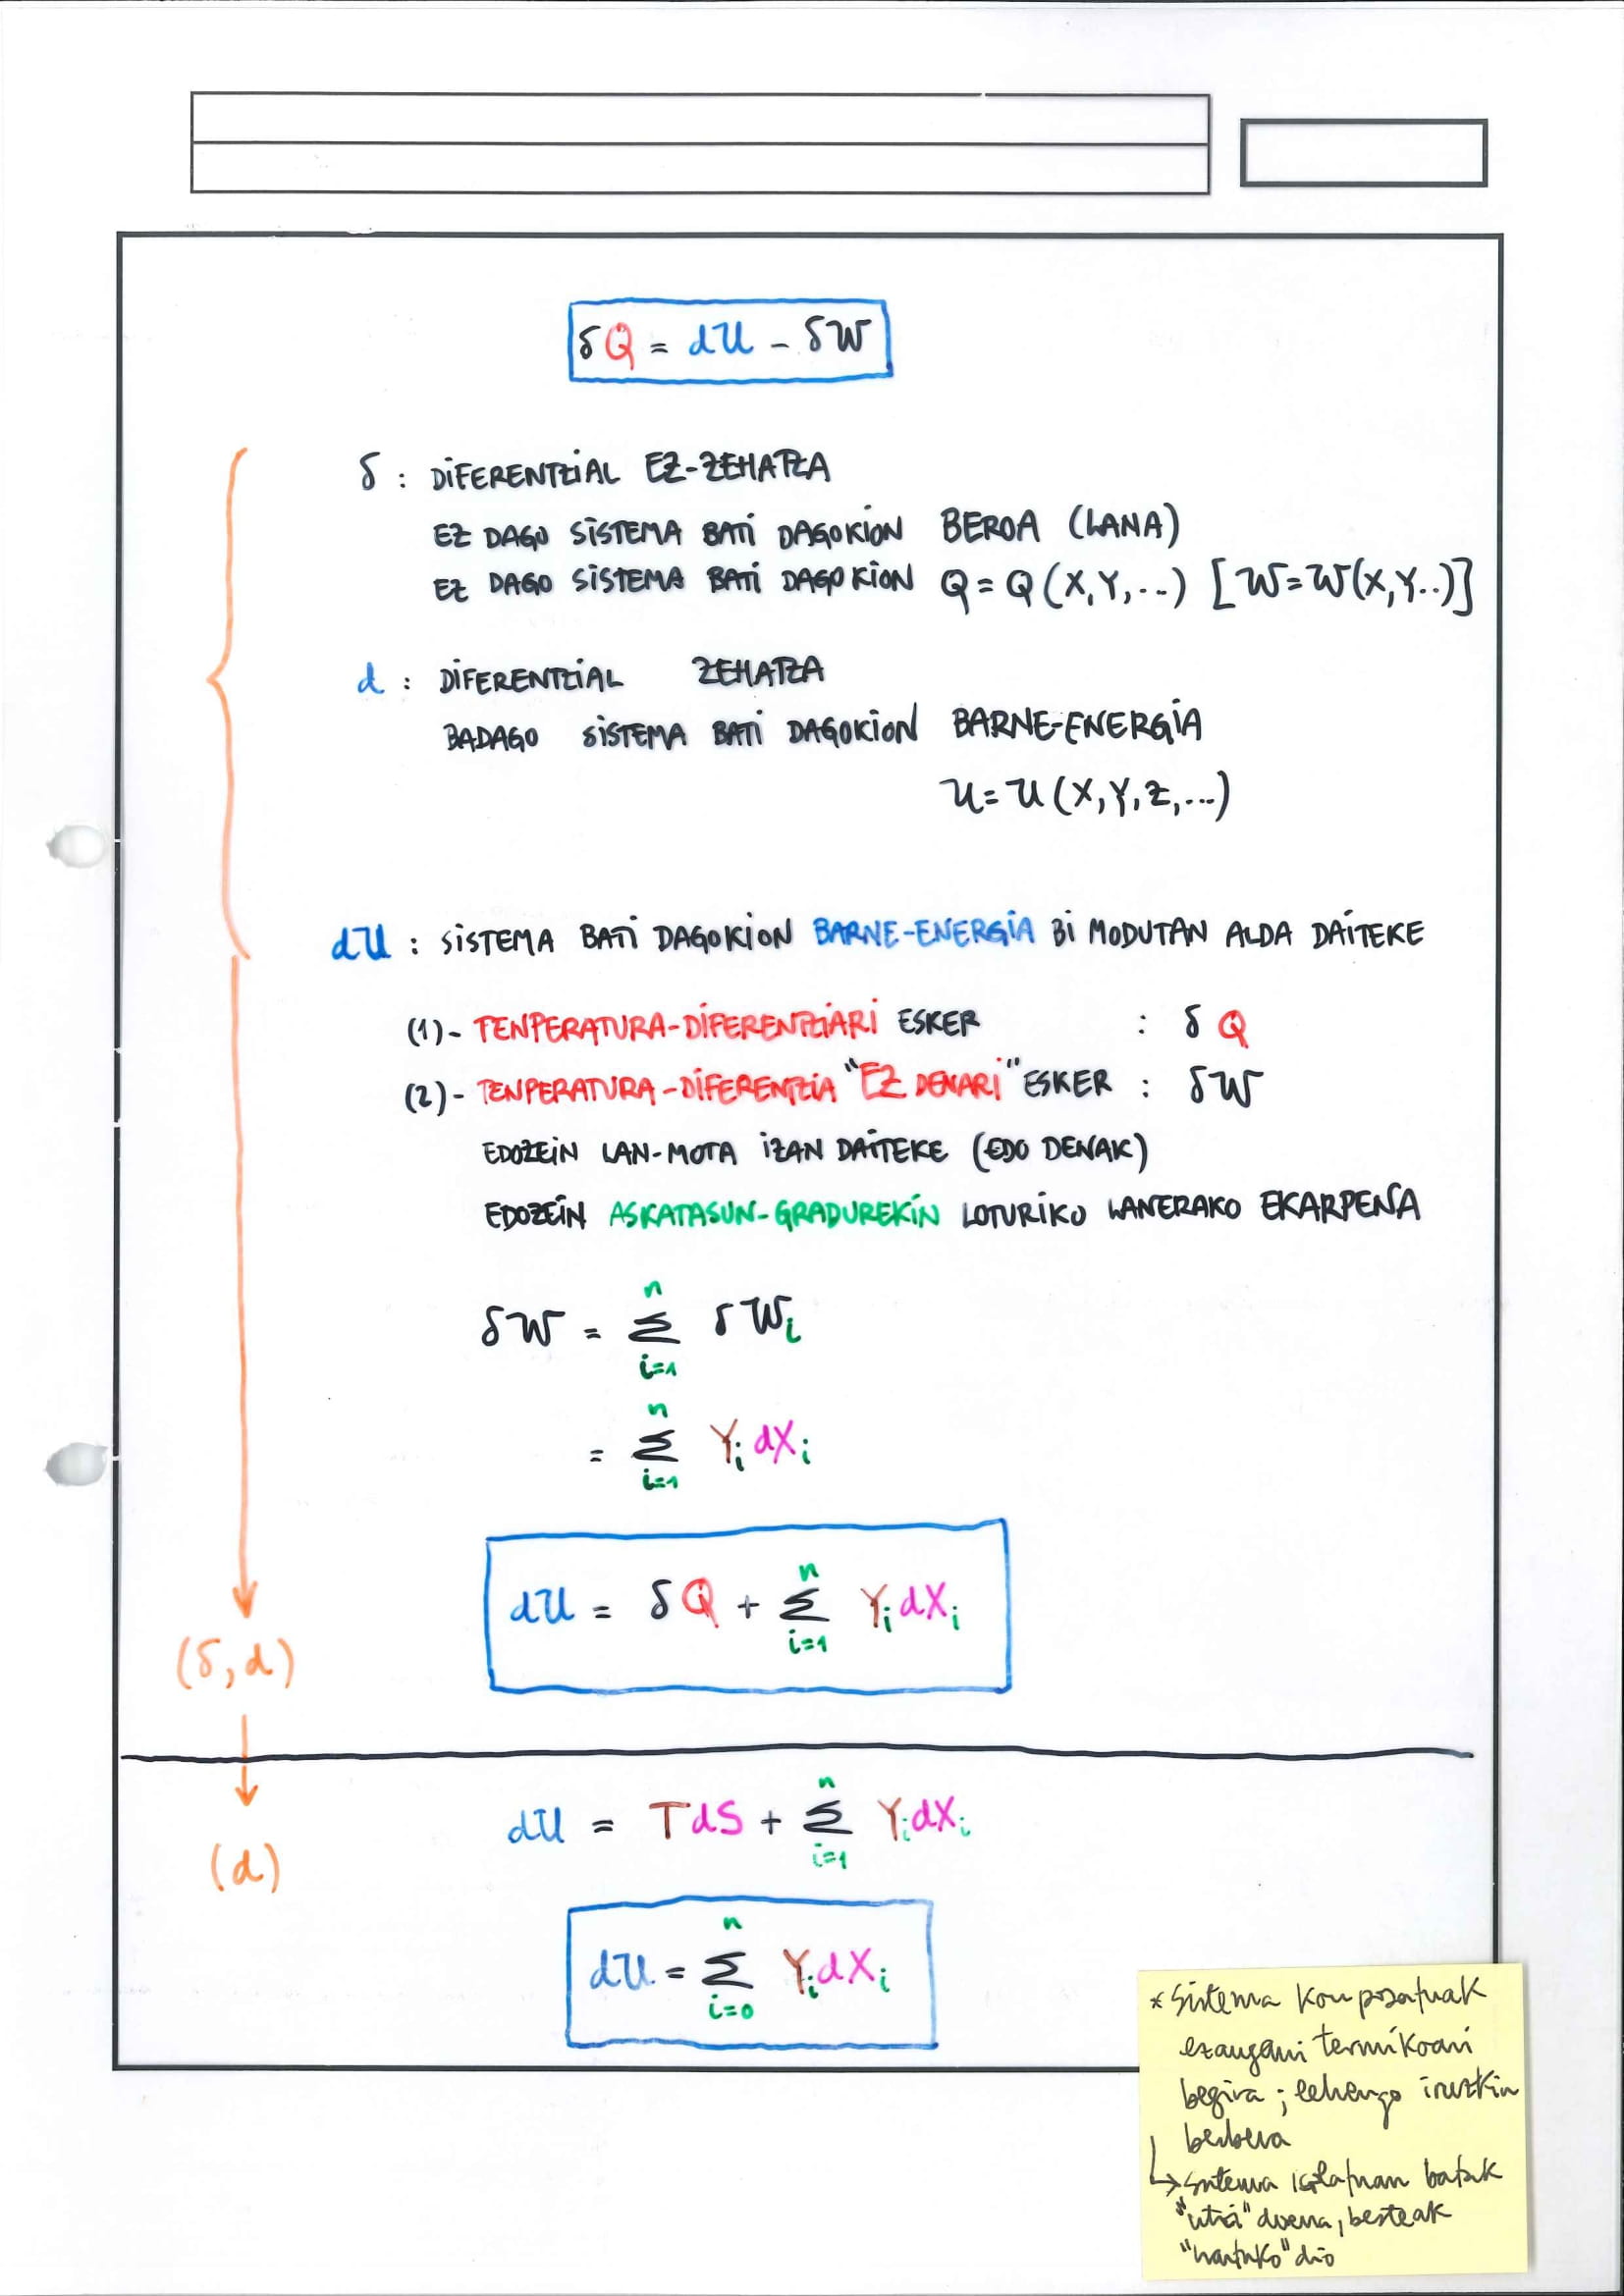 δQ = dU - δW
δ : DIFERENTZIAL EZ-ZEHATZA
EZ DAGO SISTEMA BATI DAGOKION BEROA (LANA)
EZ DAGO SISTEMA BATI DAGOKION Q = Q(X,Y,...) [W=W(X,Y..)]
d : DIFERENTZIAL ZEHATZA
BADAGO SISTEMA BATI DAGOKION BARNE-ENERGIA
U = U(X,Y,Z,...)
dU : SISTEMA BATI DAGOKION BARNE-ENERGIA BI MODUTAN ALDA DAITEKE
(1)- TENPERATURA-DIFERENTZIARI ESKER : δQ
(2)- TENPERATURA-DIFERENTZIA "EZ DENARI" ESKER : δW
EDOZEIN LAN-MOTA IZAN DAITEKE (EDO DENAK)
EDOZEIN ASKATASUN-GRADUREKIN LOTURIKO LANERAKO EKARPENA
δW = Σ_{i=1}^{n} δW_i
= Σ_{i=1}^{n} Y_i dX_i
dU = δQ + Σ_{i=1}^{n} Y_i dX_i
(δ,d)
dU = TdS + Σ_{i=1}^{n} Y_i dX_i
(d)
dU = Σ_{i=0}^{n} Y_i dX_i
* Sistema konposatuak
ezaugarri termikoari
begira; lehengo iruzkin
berbera
↳ sistema isolatuan batak
"utzi" duena, besteak
"hartuko" dio